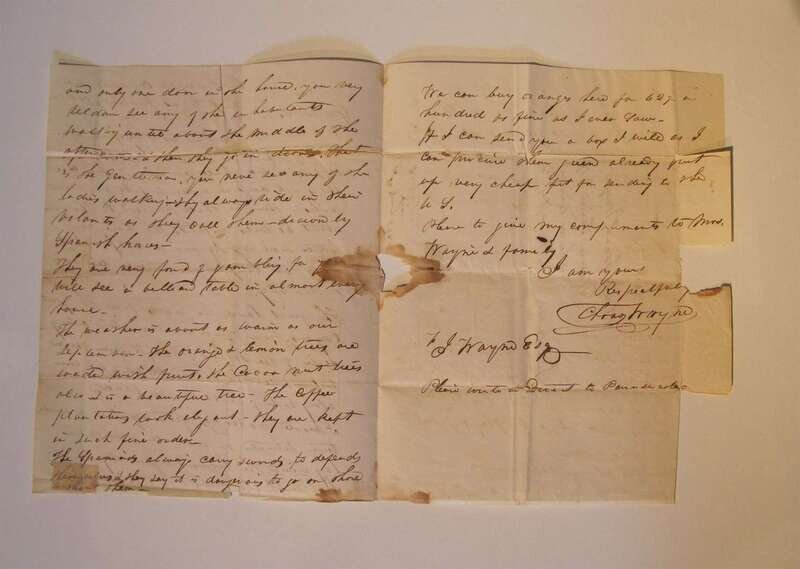 and only one door in the house, you very
seldom see any of the inhabitants
walking untill about the middle of the
afternoon then they go in that
is the Gentlemen, you never see any of the
ladies walking they always ride in their
volants as they call them drawn by
Spanish horses
They are very fond of gambling for
will see a billiard table in almost every
house
The weather is about as warm as our
The orange & lemon trees are
loaded with fruit, the Cocoa nut trees
also is a beautiful tree The Coffee
plantations look elegant they are kept
in such fine order
The Spaniards always carry swords to defend
themselves they say it is dangerous to go on shore
without them
We can buy oranges here for 62 a
hundred as fine as I ever saw
If I can send you a box I will as I
can procure them green already put
up very cheap fit for sending to the
U S.
Please to give my compliments to Mrs.
Wayne & family
I am yours
Respectfully
Wayne
J Wayne Esq
Please write Direct to Pensacola